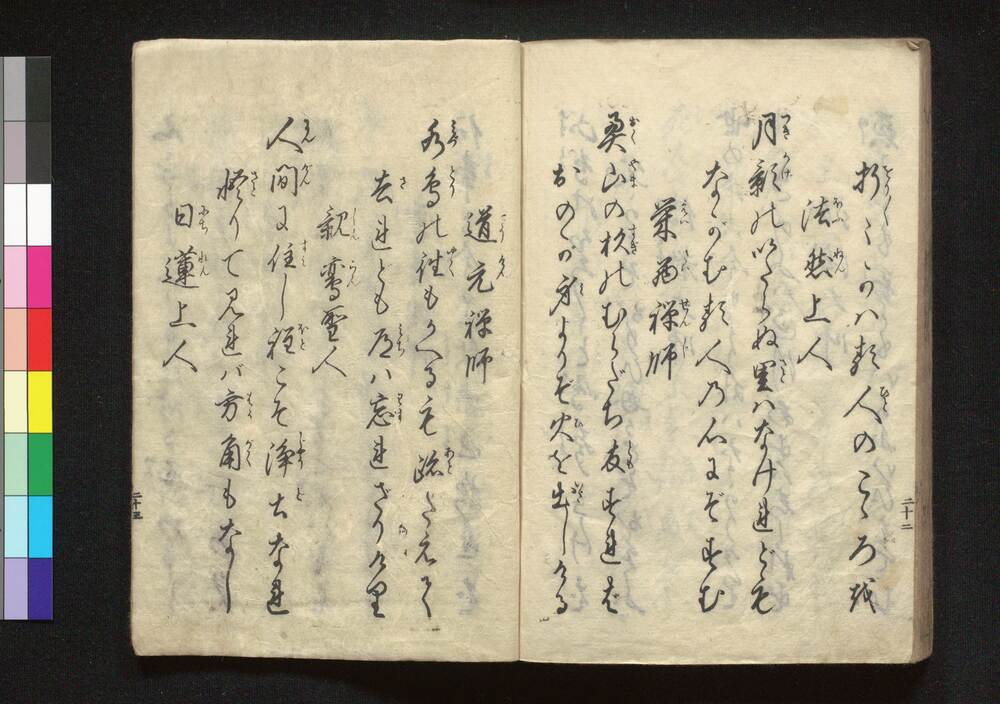 折〳〵ハ我人のこゝろ哉
法然上人
月影のいたらぬ里ハなけれども
ながむる人の心にぞすむ
栄西禅師
奥山の杦のむらだち友すれて
おのが身よりぞ火を出しける
二十二
道元禅師
水鳥の往もかへるも跡たえて
されども道ハ忘れざりけり
親鸞聖人
人間に住し程こそ浄土なれ
悟りて見れバ方角もなし
日蓮上人
二十三